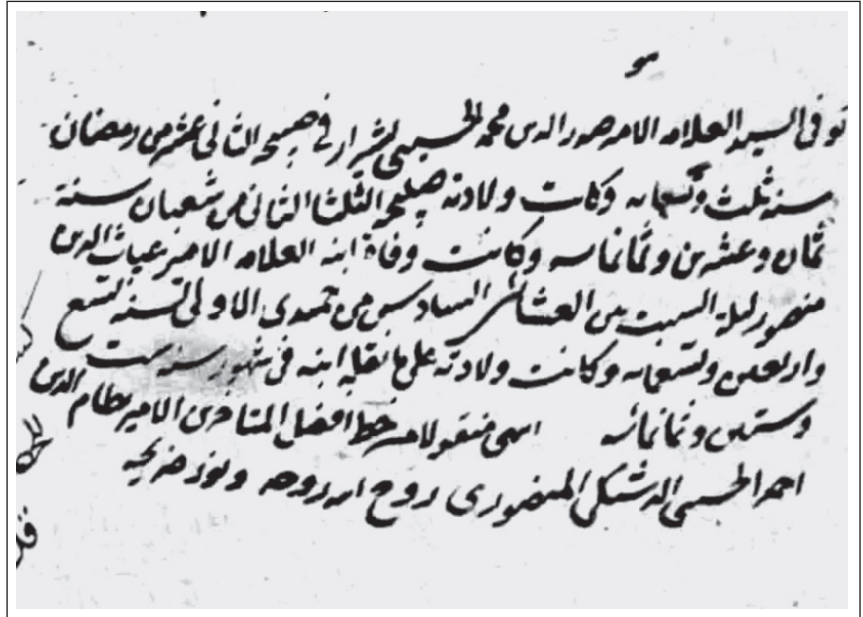 هو
توفی السید العلامه الامیر صدر الدین محمد الحسینی بشیراز فی صبیحه الثانی عشر من رمضان
سنه ثلث وتسعمایه وکانت ولادته صبیحه الثلثا الثانی من شعبان سنة
ثمان وعشرین وثمانمایه وکانت وفاة ابنه العلامه الامیر غیاث الدین
منصور لیلة السبت بین العشائین السادس من جمیدی الاولی لسنه تسع
واربعین وتسعمایه وکانت ولادته علی ما نقله ابنه فی شهور سنه ست
وستین وثمانمائه انتهی منقولا من خط افضل المتاخرین الامیر نظام الدین
احمد الحسینی الدشتکی المنصوری روح الله روحه ونور ضریحه